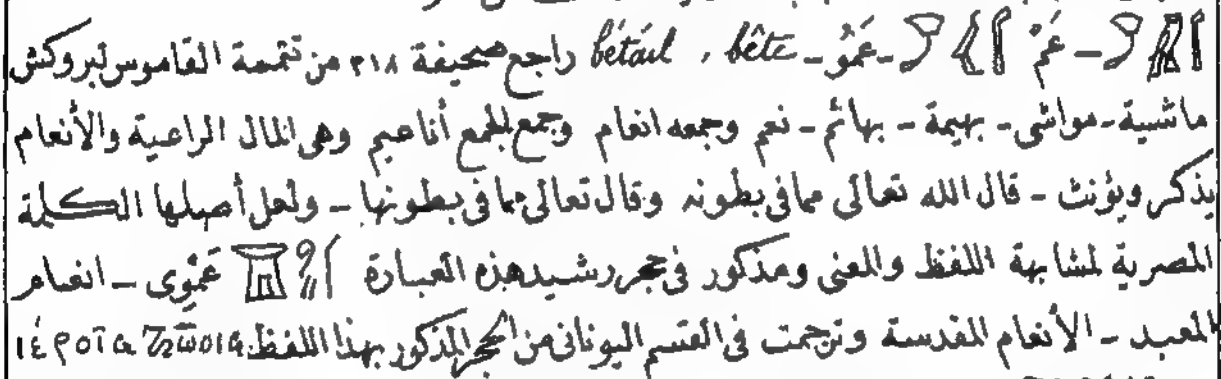 عَمْ – عَمُو – bétail , bête راجع صحيفة ٣١٨ من تتمة القاموس لبروكش
ماشية – مواشى – بهيمة – بهائم – نعم وجمعه انعام وجمع الجمع أناعيم وهى المال الراعية والأنعام
يذكر ويؤنث – قال الله تعالى مما فى بطونه وقال تعالى مما فى بطونها – ولعل أصلها الكلمة
المصرية لمشابهة اللفظ والمعنى ومذكور فى حجر رشيد هذه العبارة عَمْوِى – انعام
المعبد – الأنعام المقدسة وترجمت فى القسم اليونانى من الحجر المذكور بهذا اللفظ